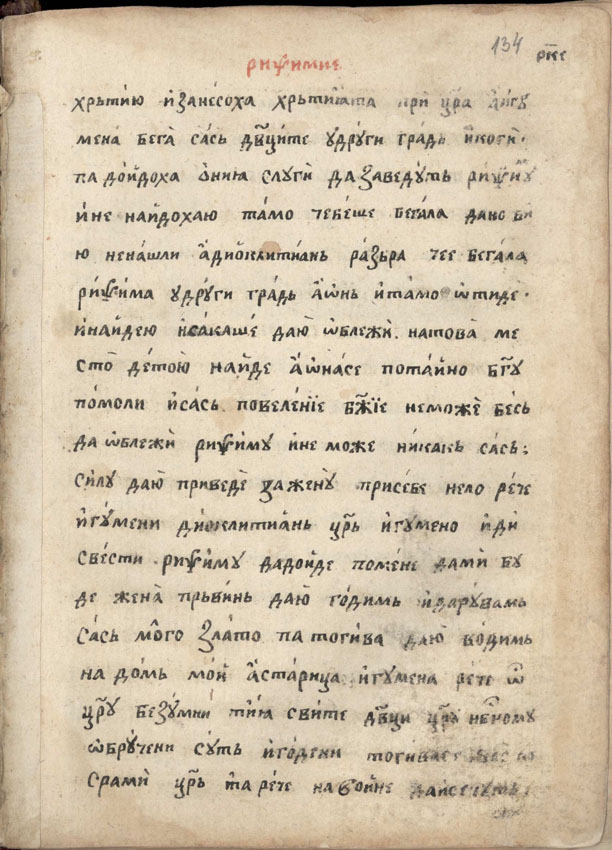 134
рк҃е
риѱимие
хрьтию и҆ занесоха хрьтиата при цр҃ѧ а҆игу
мена бега̀ сась дв҃ците у други градь и҆ когѝ·
па до́йдоха ѻ҆нию слугѝ да заведуть риѱи
и҆ не найдохаю та́мо че бе́ше бегала дано
ю не на́шли а҆ диѡклитиань разьбра че е бегала
риѱима у други градь а҆ ѻ҆нь и҆ та́мо ѿтиде·
и҆ на́йде ю и҆ са́каше да ю ѡ҆блежи̇̀. на това ме
сто̀ де то ю на́йде а҆ ѻ҆на се пота́йно бг҃у
по́моли и҆ сась повеле́нїе бж҃їе не може̇̀ бесь
да ѡ҆блежѝ риѱи́му и҆ не може ни́какь сась
си́лу да ю приведѐ за жену̀ при себе нело ре́че
и҆гу́мени диѡклитиань цр҃ь и҆гумено и҆ди̇̀
све́сти риѱи́му да до́йде по ме́не да мѝ бу
де жена̀ прьвинь да ю го́димь и҆ дарувамь
са́сь мно́го зла́то па тогива да ю водимь
на до́мь мо́й а҆ ста́рица и҆гумена ре́че ѿ
цр҃у безу́мни тиѧ свите дв҃ци цр҃у нб҃ному
ѡ҆бру́чени су́ть и҆ го́дени тогива се
срамѝ цр҃ь та ре́че на во́йне да и҆